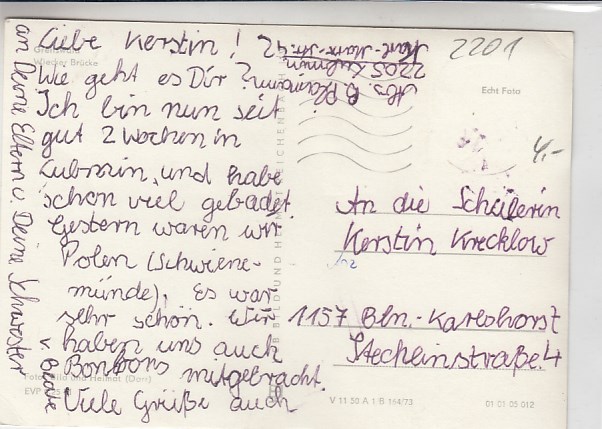 Greifswald
Wiecker Brücke
Liebe Kerstin!
Wie geht es Dir?
Ich bin nun seit
gut 2 Wochen in
Lubmin, und habe
schon viel gebadet.
Gestern waren wir
Polen (Schwiene-
münde). Es war
sehr schön. Wir
haben uns auch
Bonbons mitgebracht.
Viele Grüße auch
an Deine Eltern u. Deine Schwester
v. Beate
Abs. B.
2205 Lubmin
Karl-Marx-Str. 42
2201
Echt Foto
4,-
An die Schülerin
Kerstin Krecklow
1157 Bln.-Karlshorst
Stechlinstraße 4
Foto: Bild und Heimat (Darr)
EVP
V 11 50 A 1 B 164/73
01 01 05 012